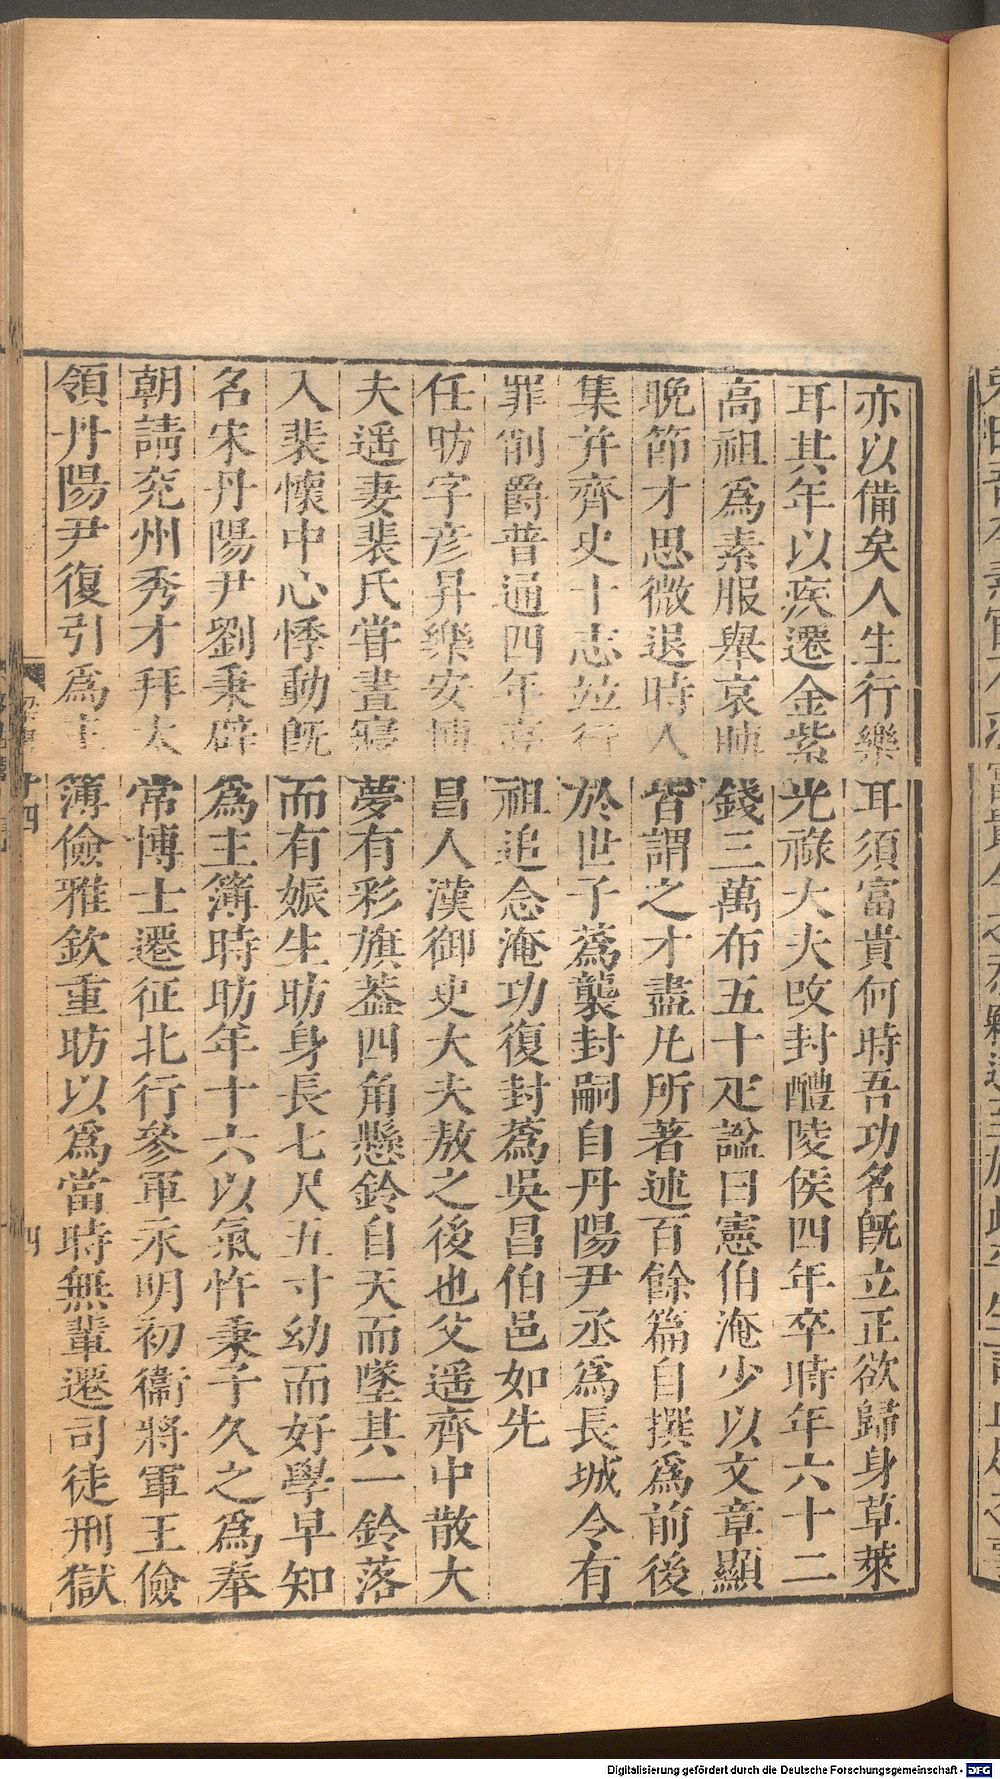 亦以備矣人生行樂耳須富貴何時吾功名旣立正欲歸身草萊
耳其年以疾遷金紫光祿大夫攺封醴陵侯四年卒時年六十二
高祖爲素服舉哀賻錢三萬布五十疋諡曰憲伯淹少以文章顯
晚節才思微退時人皆謂之才盡凡所著述百餘篇自撰爲前後
集并齊史十志竝行於世子蒍襲封嗣自丹陽尹丞爲長城令有
罪削爵普通四年高祖追念淹功復封蒍吳昌伯邑如先
任昉字彦昇樂安博昌人漢御史大夫敖之後也父遥齊中散大
夫遥妻裴氏甞晝寢夢有彩旗葢四角懸鈴自天而墜其一鈴落
入裴懷中心悸動旣而有娠生昉身長七尺五寸幼而好學早知
名宋丹陽尹劉秉辟爲主簿時昉年十六以氣忤秉子久之爲奉
朝請兖州秀才拜太常博士遷征北行參軍永明初衞將軍王儉
領丹陽尹復引爲主簿儉雅欽重昉以爲當時無輩遷司徒刑獄
十四
四
Digitalisierung gefördert durch die Deutsche Forschungsgemeinschaft - DFG